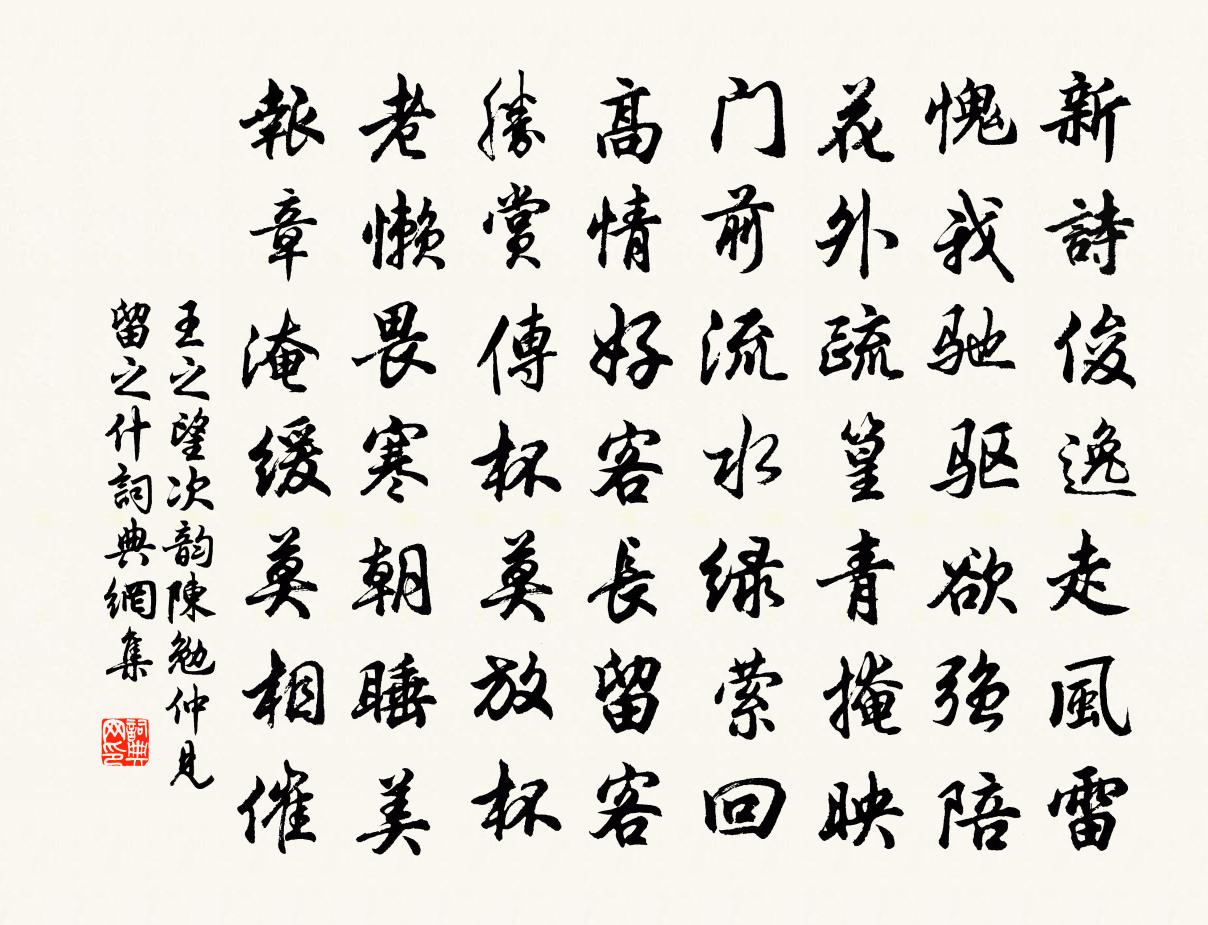 新詩俊逸走風雷
愧我驰驱欲强陪
花外疏篁青掩映
门前流水绿萦回
高情好客長留客
勝赏傳杯莫放杯
老懒畏寒朝睡美
報章淹缓莫相催
王之望次韵陳勉仲見
留之什詞典網集
詞典网印